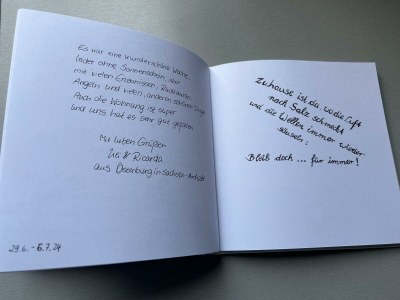 Es war eine wunderschöne Woche
leider ohne Sonnenschein, aber
mit vielen Erlebnissen, Radtouren,
Angeln und vielen anderen schönen Dingen
Auch die Wohnung ist super
und uns hat es sehr gut gefallen
Mit lieben Grüßen
& Ricarda
aus Derenburg in Sachsen-Anhalt
29.6. - 6.7.24
Zuhause ist da, wo die Luft
nach Salz schmeckt
und die Wellen immer wieder
:
Bleib doch ... für immer!